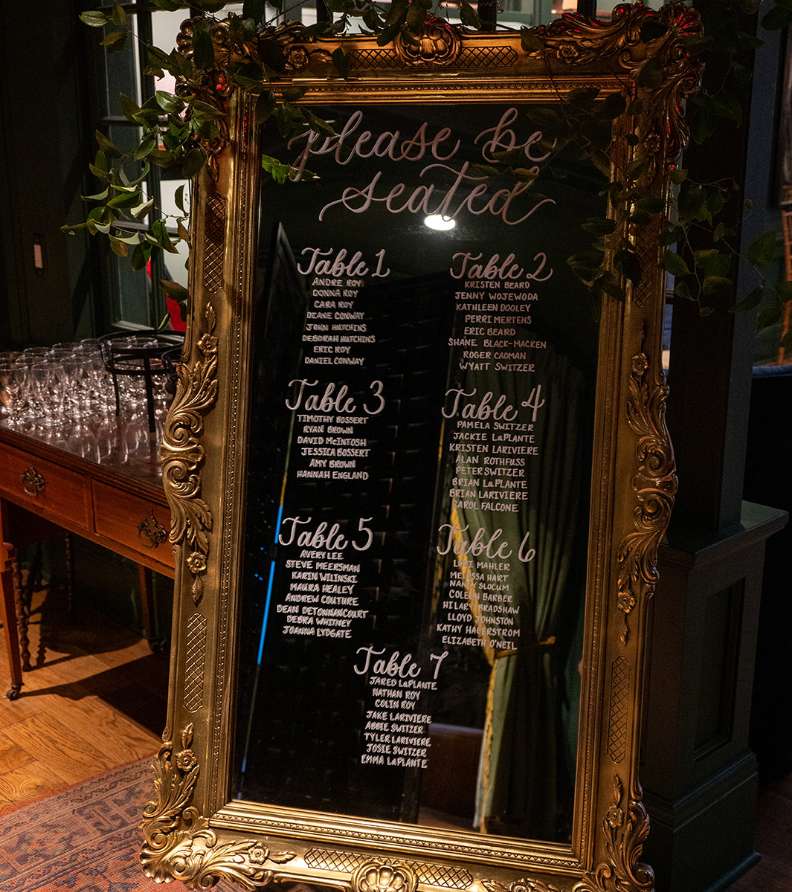 please be
seated
Table 1
ANDRE ROY
DONNA ROY
CARA ROY
DEANE CONWAY
JOHN HUTCHINS
DEBORAH HUTCHINS
ERIC ROY
DANIEL CONWAY
Table 2
KRISTEN BEARD
JENNY WOJEWODA
KATHLEEN DOOLEY
PERRI MERTENS
ERIC BEARD
SHANE BLACK-MACKEN
ROGER CAOMAN
WYATT SWITZER
Table 3
TIMOTHY BOSSERT
RYAN BROWN
DAVID McINTOSH
JESSICA BOSSERT
AMY BROWN
HANNAH ENGLAND
Table 4
PAMELA SWITZER
JACKIE LAPLANTE
KRISTEN LARIVIERE
ALAN ROTHFUSS
PETER SWITZER
BRIAN LAPLANTE
BRIAN LARIVIERE
CAROL FALCONE
Table 5
AVERY LEE
STEVE MEERSMAN
KARIN WILINSKI
MAURA HEALEY
ANDREW COUTURE
DEAN DETONNANCOURT
DEBRA WHITNEY
JOANNA LYDGATE
Table 6
MAHLER
MELISSA HART
NANCY SLOCUM
COLEEN BARBER
HILARY BRADSHAW
LLOYD JOHNSTON
KATHY HAGERSTROM
ELIZABETH O'NEIL
Table 7
JARED LAPLANTE
NATHAN ROY
COLIN ROY
JAKE LARIVIERE
ABBIE SWITZER
TYLER LARIVIERE
JOSIE SWITZER
EMMA LAPLANTE